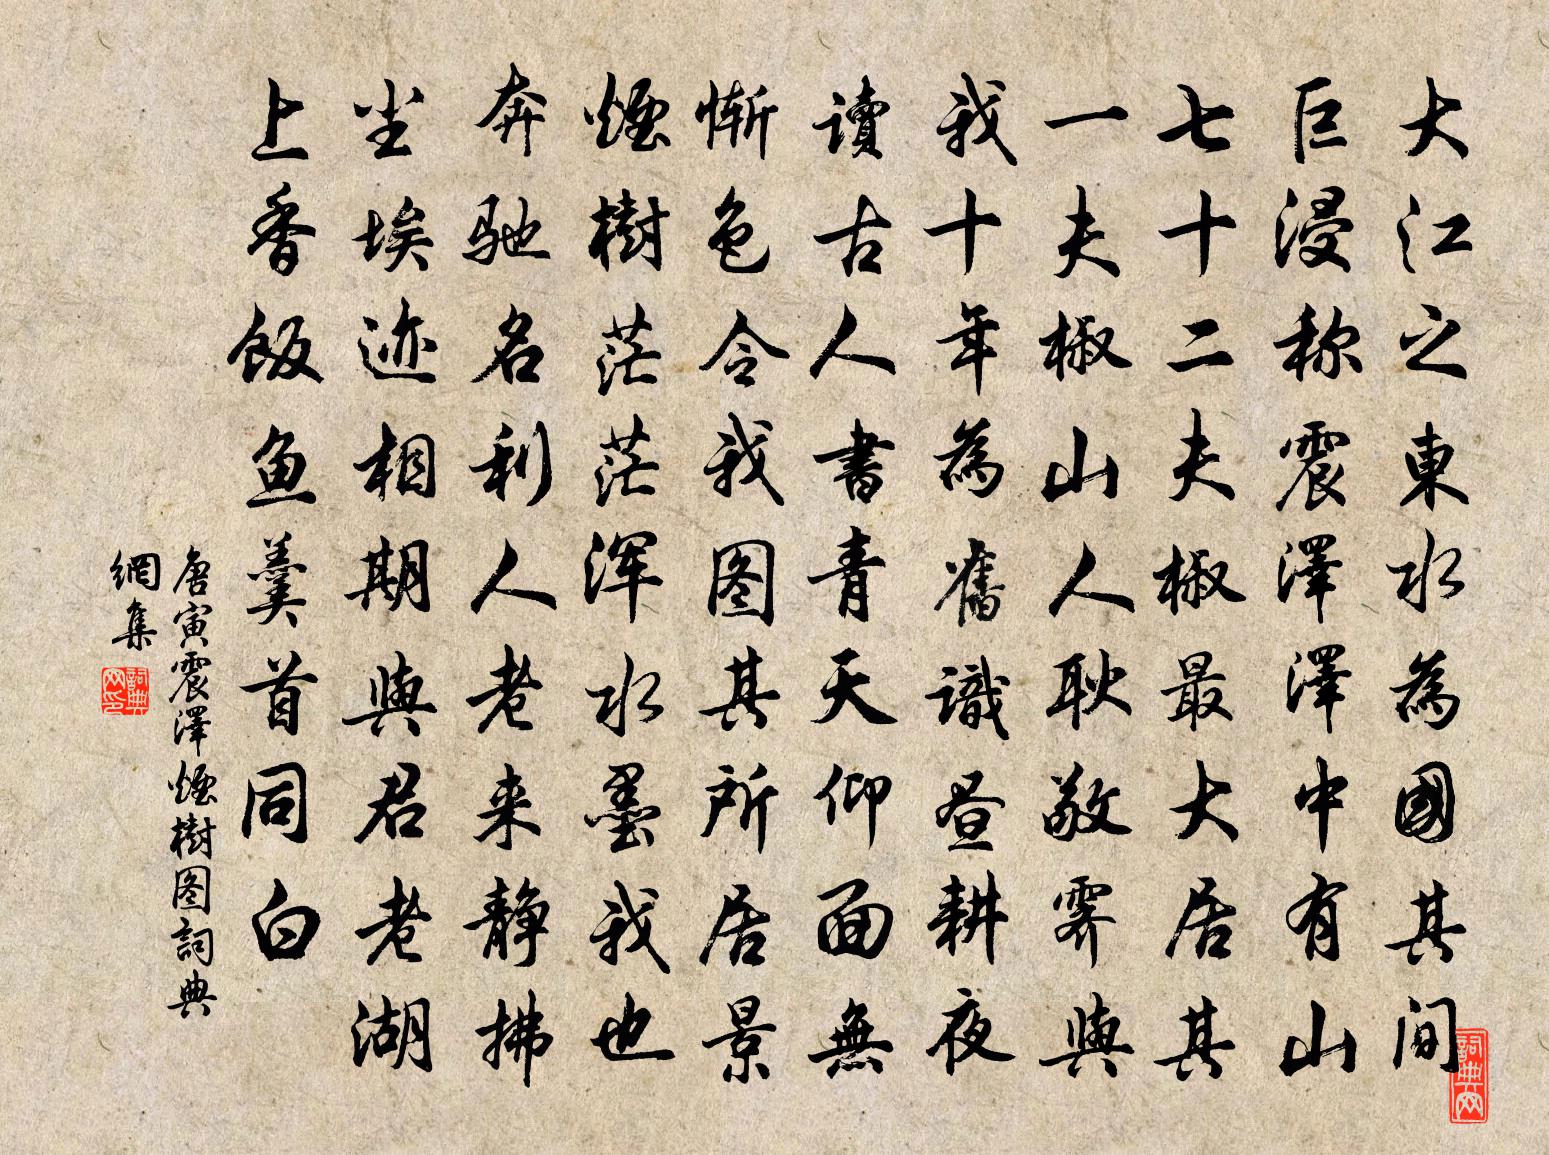 大江之東水為國其间
巨浸称震澤澤中有山
七十二夫椒最大居其
一夫椒山人耿敬霁與
我十年為舊識昼耕夜
讀古人書青天仰面無
惭色令我图其所居景
煙樹茫茫浑水墨我也
奔驰名利人老来静拂
尘埃迹相期與君老湖
上香饭鱼羹首同白
唐寅震澤煙樹图詞典
網集
詞典网印
詞典网